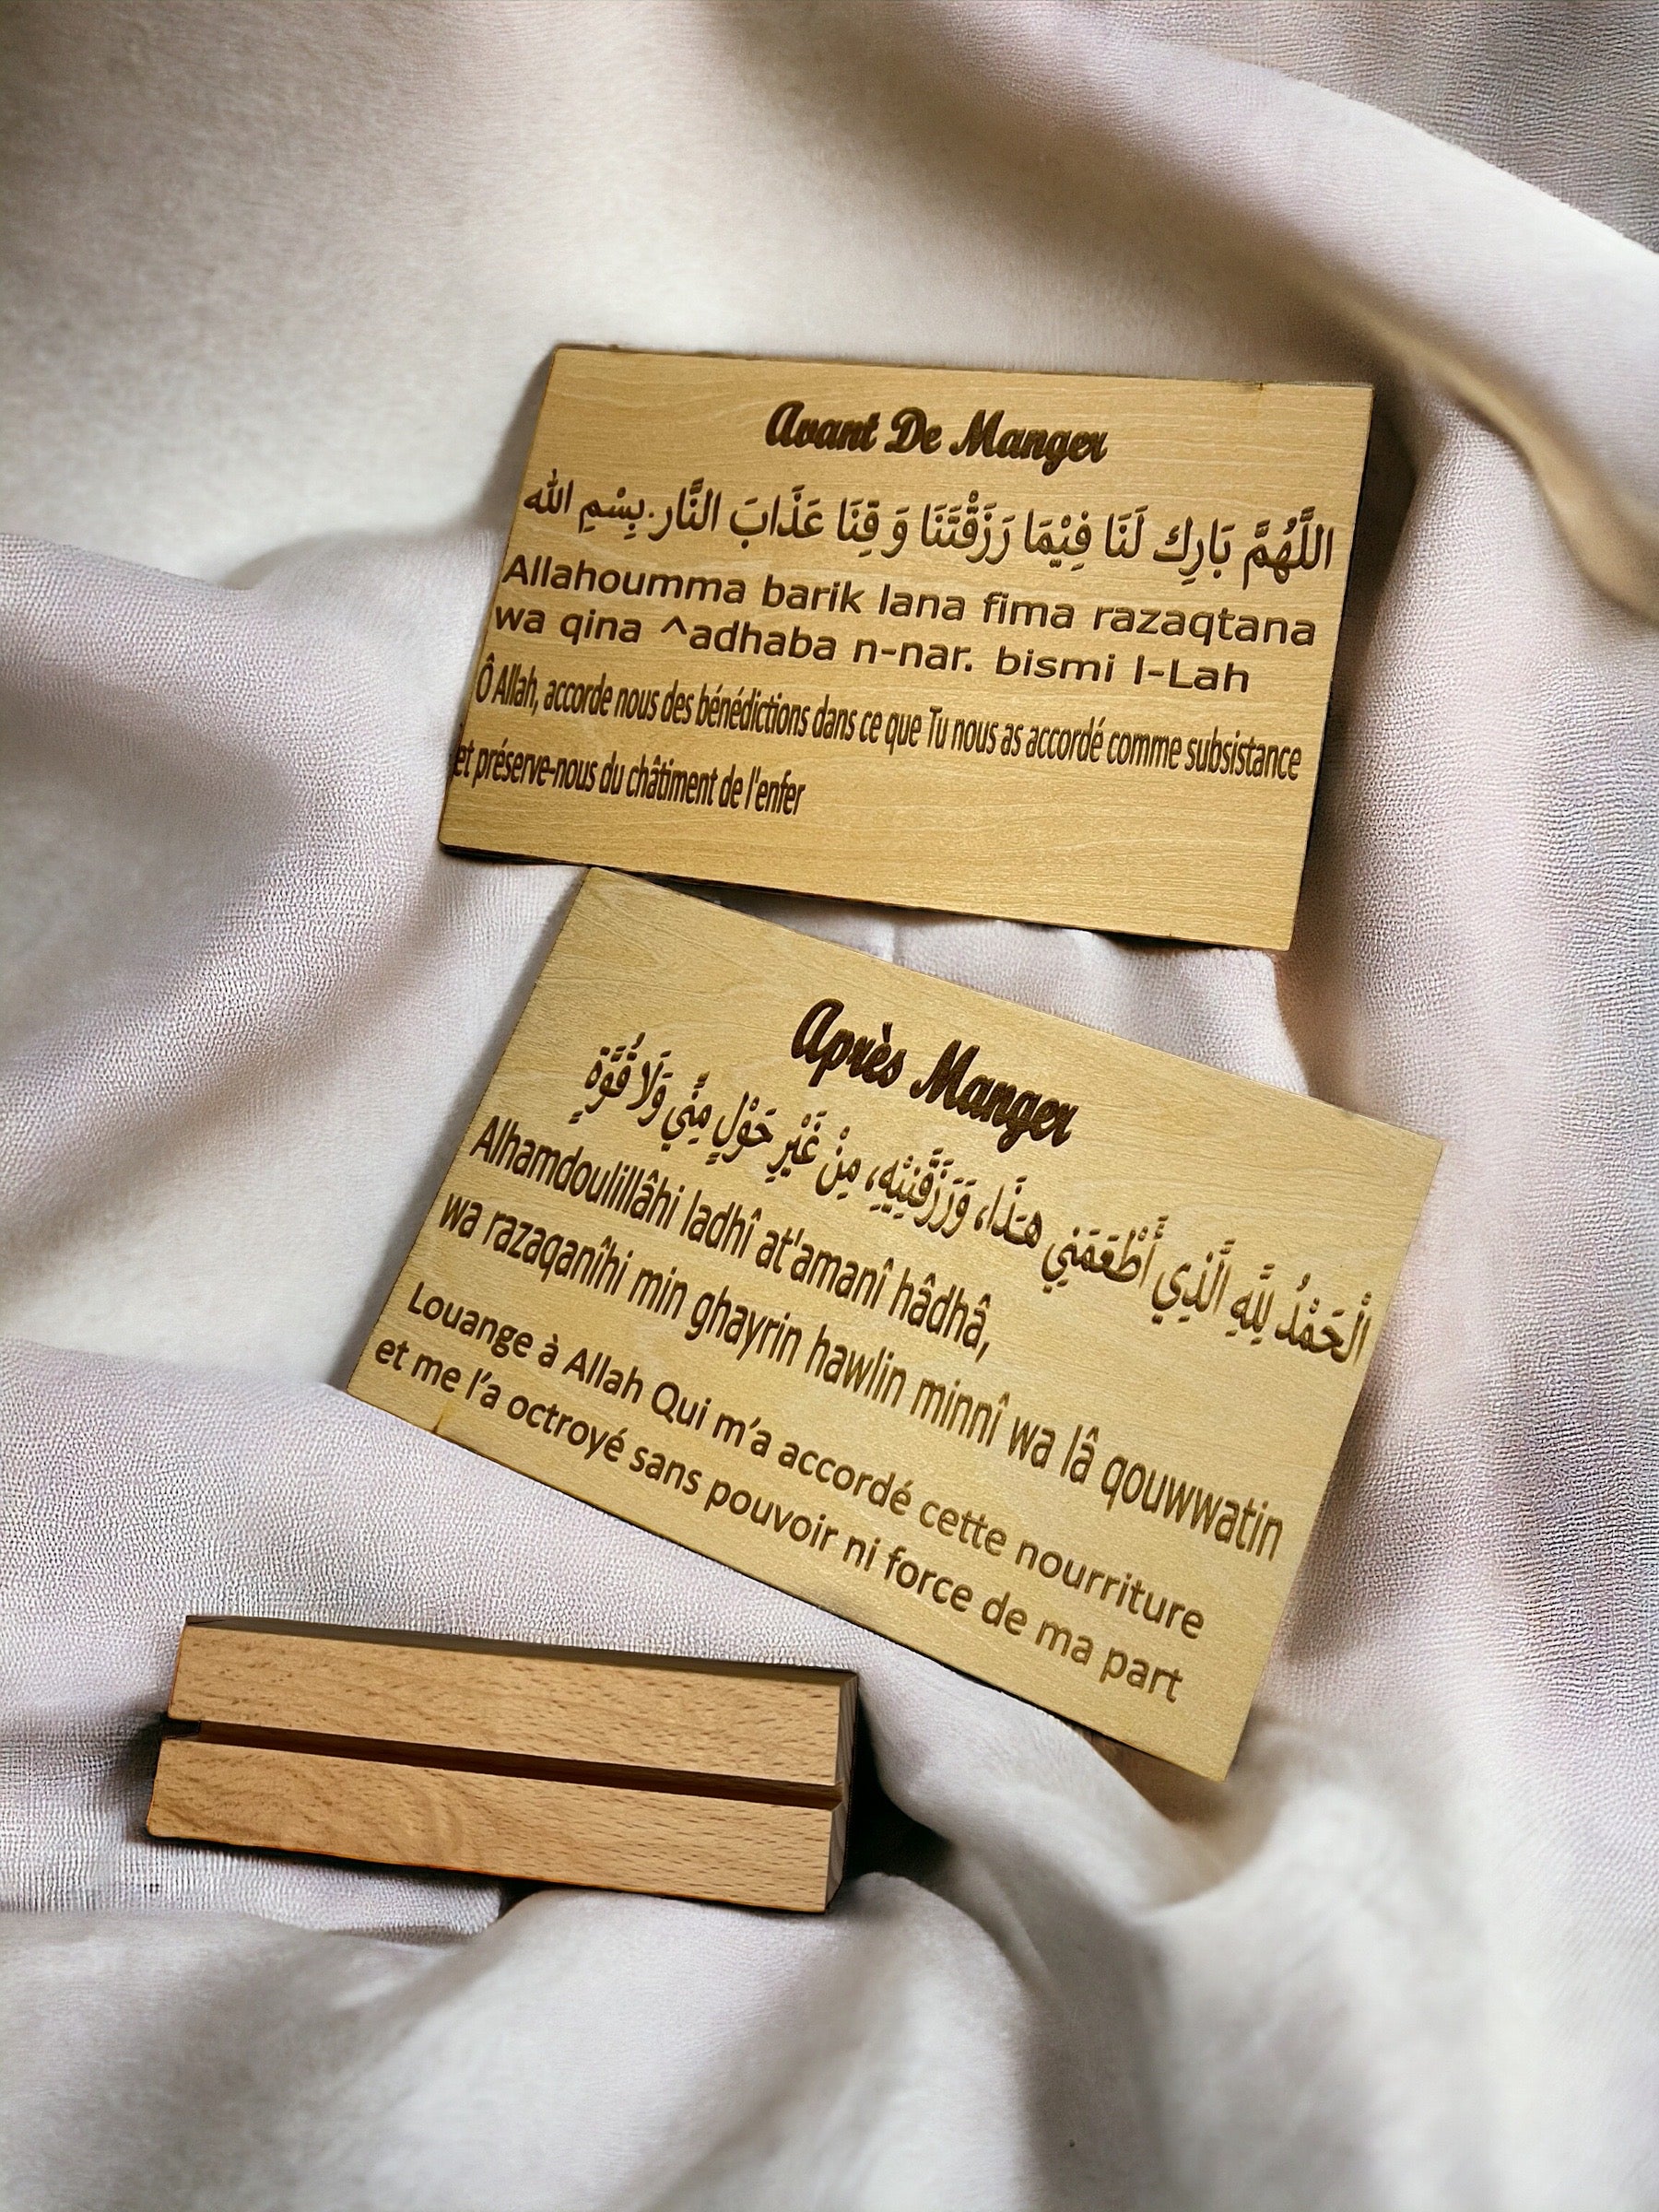 Avant De Manger
اللَّهُمَّ بَارِك لَنَا فِيْمَا رَزَقْتَنَا وَ قِنَا عَذَابَ النَّار.بِسْمِ الله
Allahoumma barik lana fima razaqtana
wa qina ^adhaba n-nar. bismi l-Lah
Ô Allah, accorde nous des bénédictions dans ce que Tu nous as accordé comme subsistance
et préserve-nous du châtiment de l'enfer
Après Manger
اَلْحَمْدُ لِلَّهِ الَّذِي أَطْعَمَنِي هَـذَا، وَرَزَقَنِيْهِ، مِنْ غَيْرِ حَوْلٍ مِنِّي وَلَا قُوَّةٍ
Alhamdoulillâhi ladhî at'amanî hâdhâ,
wa razaqanîhi min ghayrin hawlin minnî wa lâ qouwwatin
Louange à Allah Qui m’a accordé cette nourriture
et me l’a octroyé sans pouvoir ni force de ma part